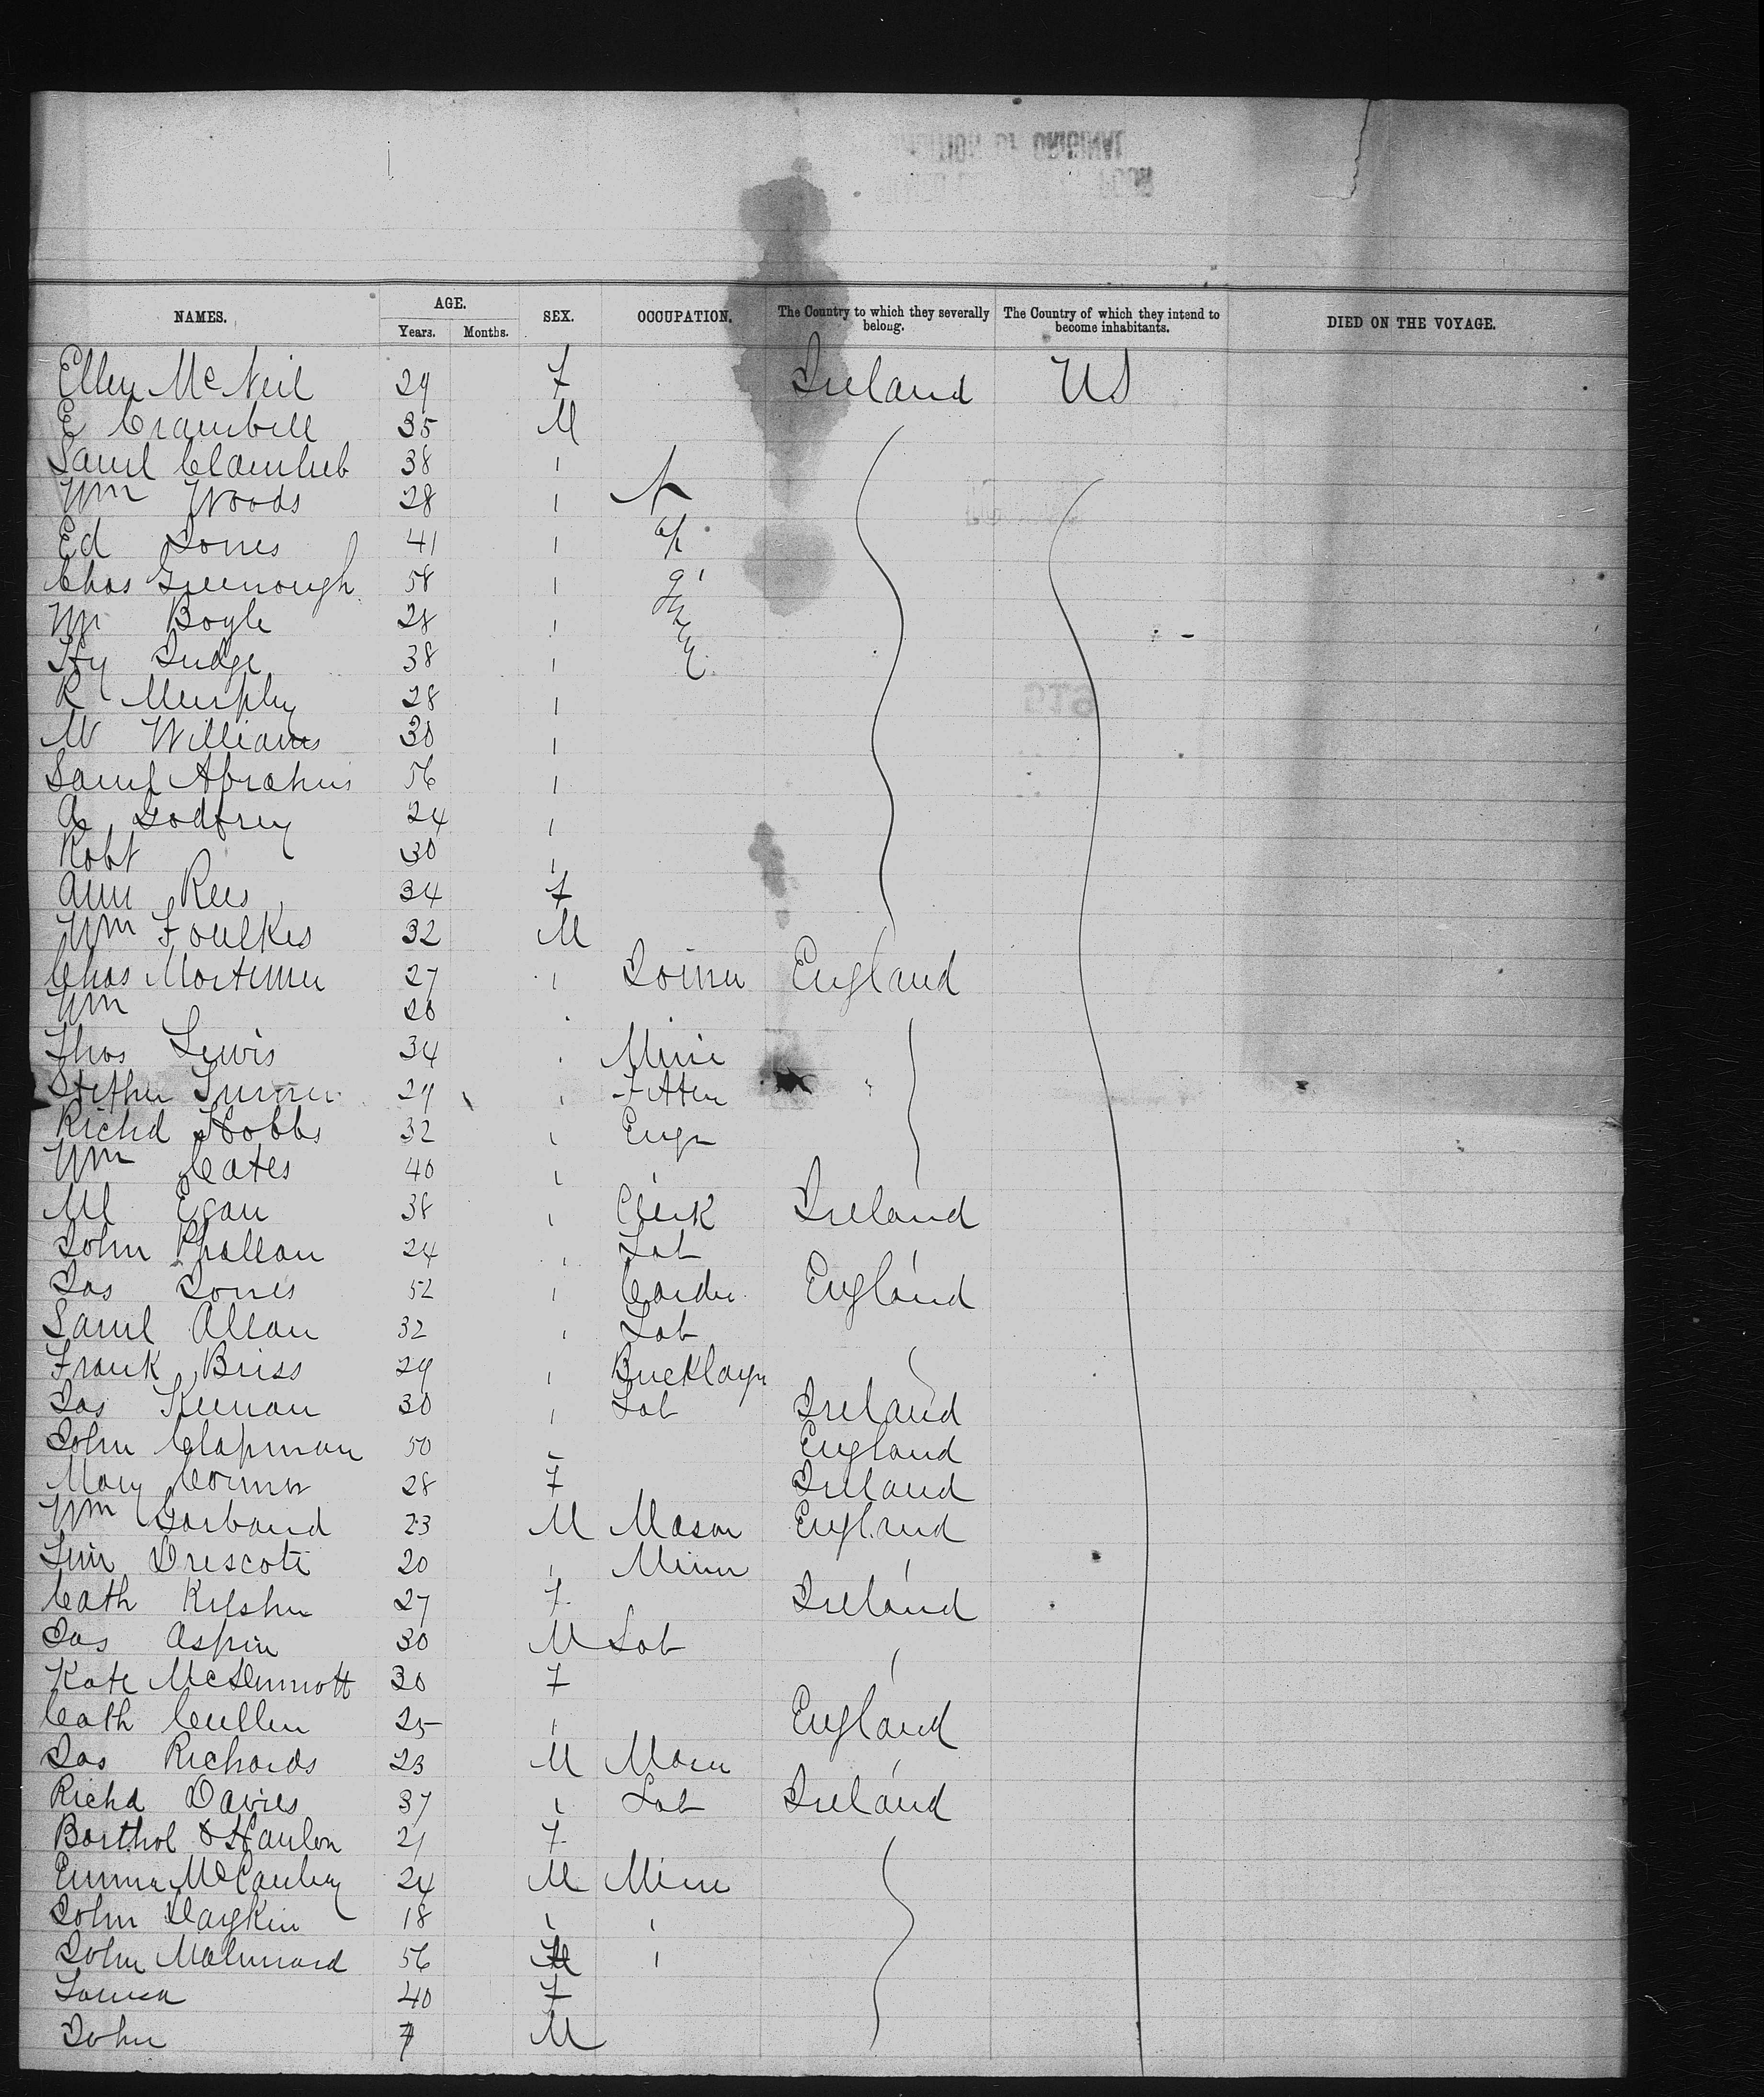 NAMES. AGE. SEX. OCCUPATION. The Country to which they severally belong. The Country of which they intend to become inhabitants. DIED ON THE VOYAGE.
Years. Months.
Ellen McNeil 29 F Ireland US
E 35 M
Saml 38 "
Wm Woods 28 "
Ed Jones 41 "
Chas Greenough 58 "
Wm Boyle 28 "
Hy Judge 38 "
R Murphy 28 "
W Williams 30 "
Saml Abrahms 56 "
A Godfrey 24 "
Robt 30 "
Ann Rees 34 F
Wm Foulkes 32 M
Chas Mortimer 27 " Joiner England
Wm 20
Thos Lewis 34 " Mine
Stephen Turner 29 " Fitter
Richd Hobbs 32 " Engr
Wm Cates 40 " "
Ml Egan 38 " Clerk Ireland
John Phallan 24 " Lab "
Jas Jones 52 " Gardr England
Saml Allan 32 " Lab
Frank Briss 29 " Bricklayr
Jas Keenan 30 " Lab Ireland
John Clapman 50 " England
Mary Connor 28 F Ireland
Wm Garband 23 M Mason England
Drescott 20 " Miner "
Cath 27 F Ireland
Jas Aspin 30 M Lab
Kate McDermott 30 F "
Cath Cullen 25 " England
Jas Richards 23 M "
Richd Davies 37 " Lab Ireland
Barthol O'Hanlon 21 F
Emma McCauley 24 M Mine
John 18 " "
John 56 M "
Louisa 40 F
John 7 M